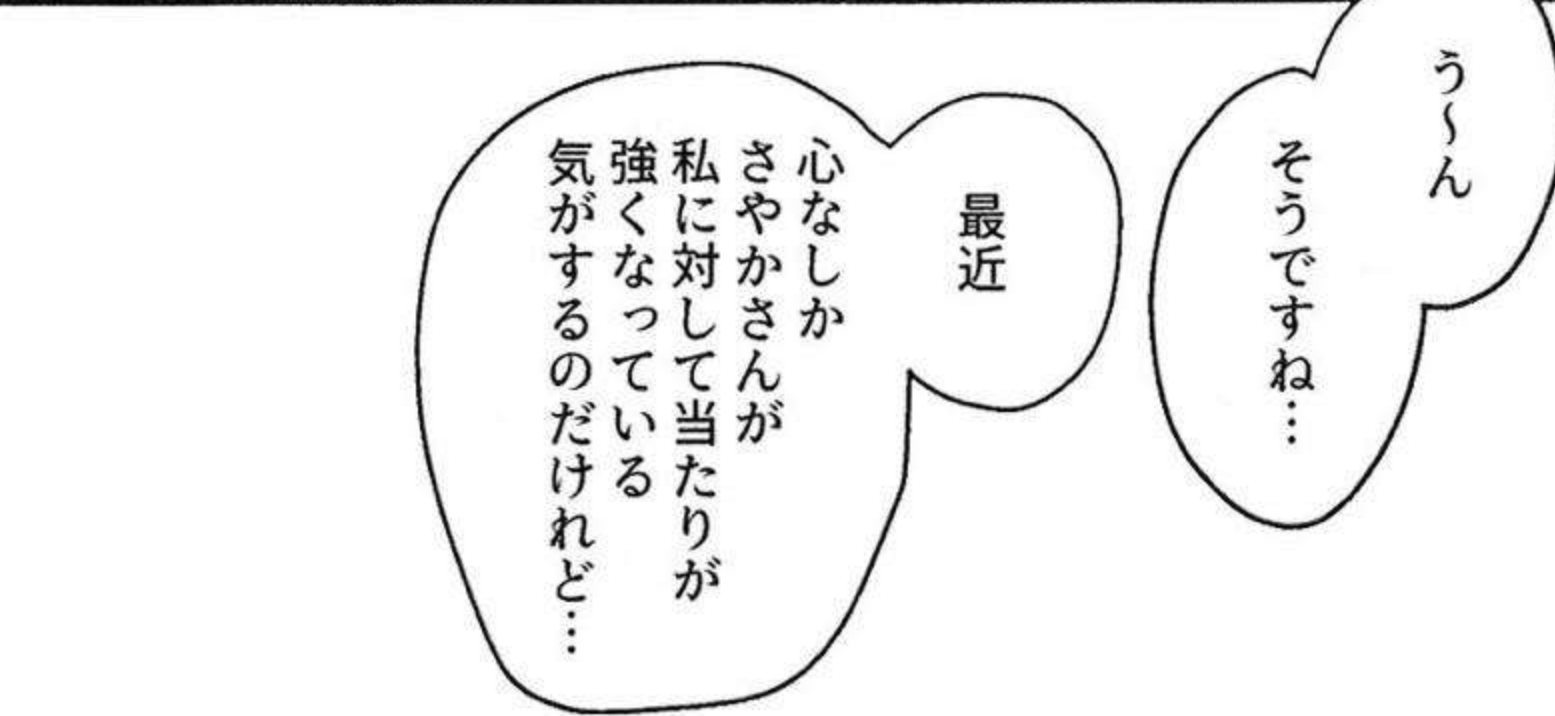 う～ん
そうですね…
最近
心なしか
さやかさんが
私に対して当たりが
強くなっている
気がするのだけれど…